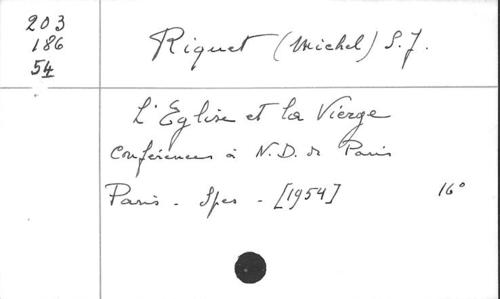 203
186
54
Riquet (Michel) S.J.
L'Eglise et la Vierge
Conférences à N.D. de Paris
Paris - Spes - [1954] 16°